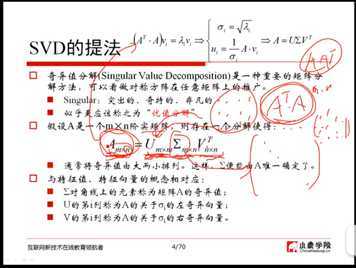 SVD的提法
(Aᵀ·A)vᵢ = λᵢvᵢ ⇒ { σᵢ = √λᵢ , uᵢ = 1/σᵢ A·vᵢ ⇒ A = UΣVᵀ
奇异值分解(Singular Value Decomposition)是一种重要的矩阵分
解方法,可以看做对称方阵在任意矩阵上的推广。
Singular:突出的、奇特的、非凡的
似乎更应该称之为“优值分解”
假设A是一个m×n阶实矩阵,则存在一个分解使得:
Aₘ×ₙ = Uₘ×ₘ Σₘ×ₙ Vᵀₙ×ₙ
通常将奇异值由大而小排列。这样,Σ便能由A唯一确定了。
与特征值、特征向量的概念相对应:
Σ对角线上的元素称为矩阵A的奇异值;
U的第i列称为A的关于σᵢ的左奇异向量;
V的第i列称为A的关于σᵢ的右奇异向量。
AAᵀ
Aᵀ·A
互联网新技术在线教育领航者
4/70
小象学院
ChinaHadoop.cn